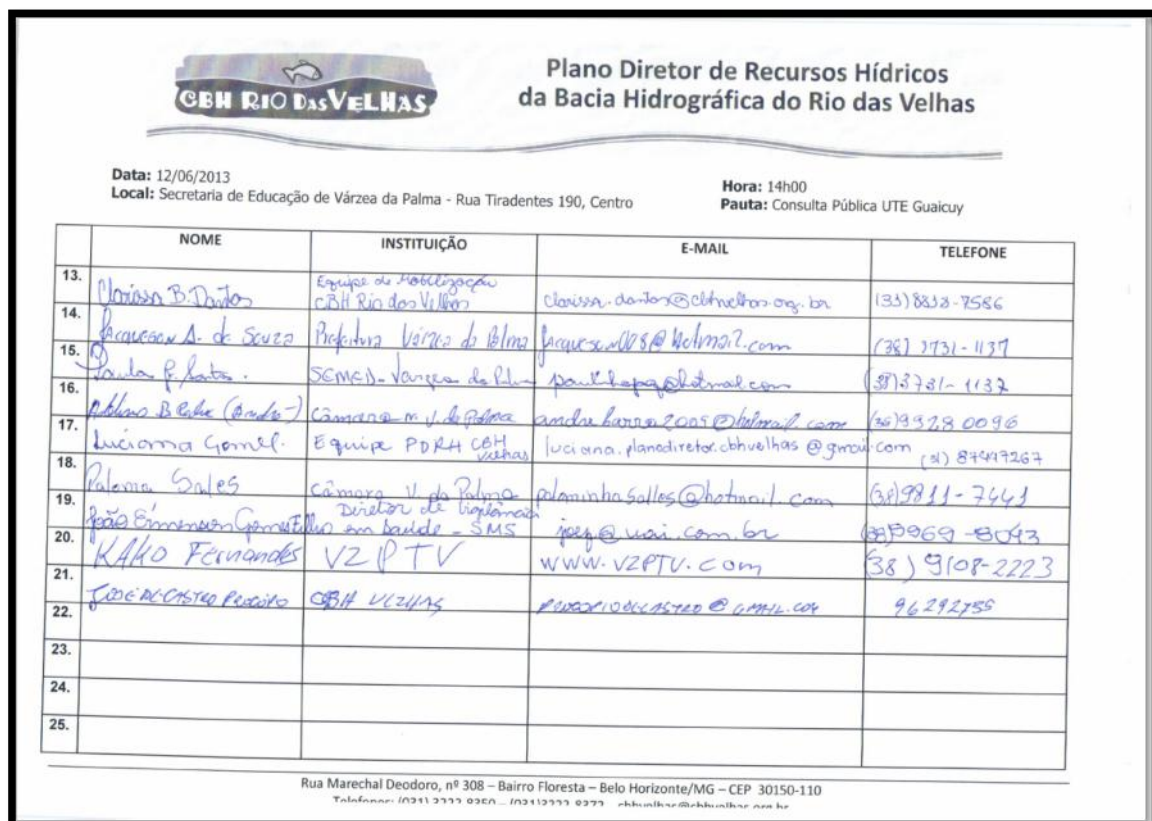 CBH RIO DAS VELHAS
Plano Diretor de Recursos Hídricos
da Bacia Hidrográfica do Rio das Velhas
Data: 12/06/2013
Local: Secretaria de Educação de Várzea da Palma - Rua Tiradentes 190, Centro
Hora: 14h00
Pauta: Consulta Pública UTE Guaicuy
NOME INSTITUIÇÃO E-MAIL TELEFONE
13. Clarissa B. Dantas Equipe de Mobilização
CBH Rio das Velhas clarissa.dantas@cbhvelhas.org.br
14. A. de Souza Prefeitura Várzea da Palma (38) 3731-1137
15. Paula SEMED - Varzea da Palma (38) 3731-1137
16. (André) Câmara m. V. da Palma andrebarra2009@hotmail.com (38) 9928 0096
17. Luciana Gomes. Equipe PDRH CBH Velhas luciana.planodiretor.cbhvelhas@gmail.com (31) 87497267
18. Paloma Sales Câmara V. da Palma palominhasalles@hotmail.com (38) 9811-7441
19. João Emmerson Gomes Filho Diretor de Vigilância
em Saúde - SMS @uai.com.br
20. KAKO Fernandes VZPTV www.VZPTV.com (38) 9108-2223
21. JOSE DE CASTRO PROCÓPIO CBH VELHAS PROCOPIODECASTRO@GMAIL.COM
22.
23.
24.
25.
Rua Marechal Deodoro, nº 308 – Bairro Floresta – Belo Horizonte/MG – CEP 30150-110
Telefones: (031) 3222-8350 – (031)3222-8372 cbhvelhas@cbhvelhas.org.br